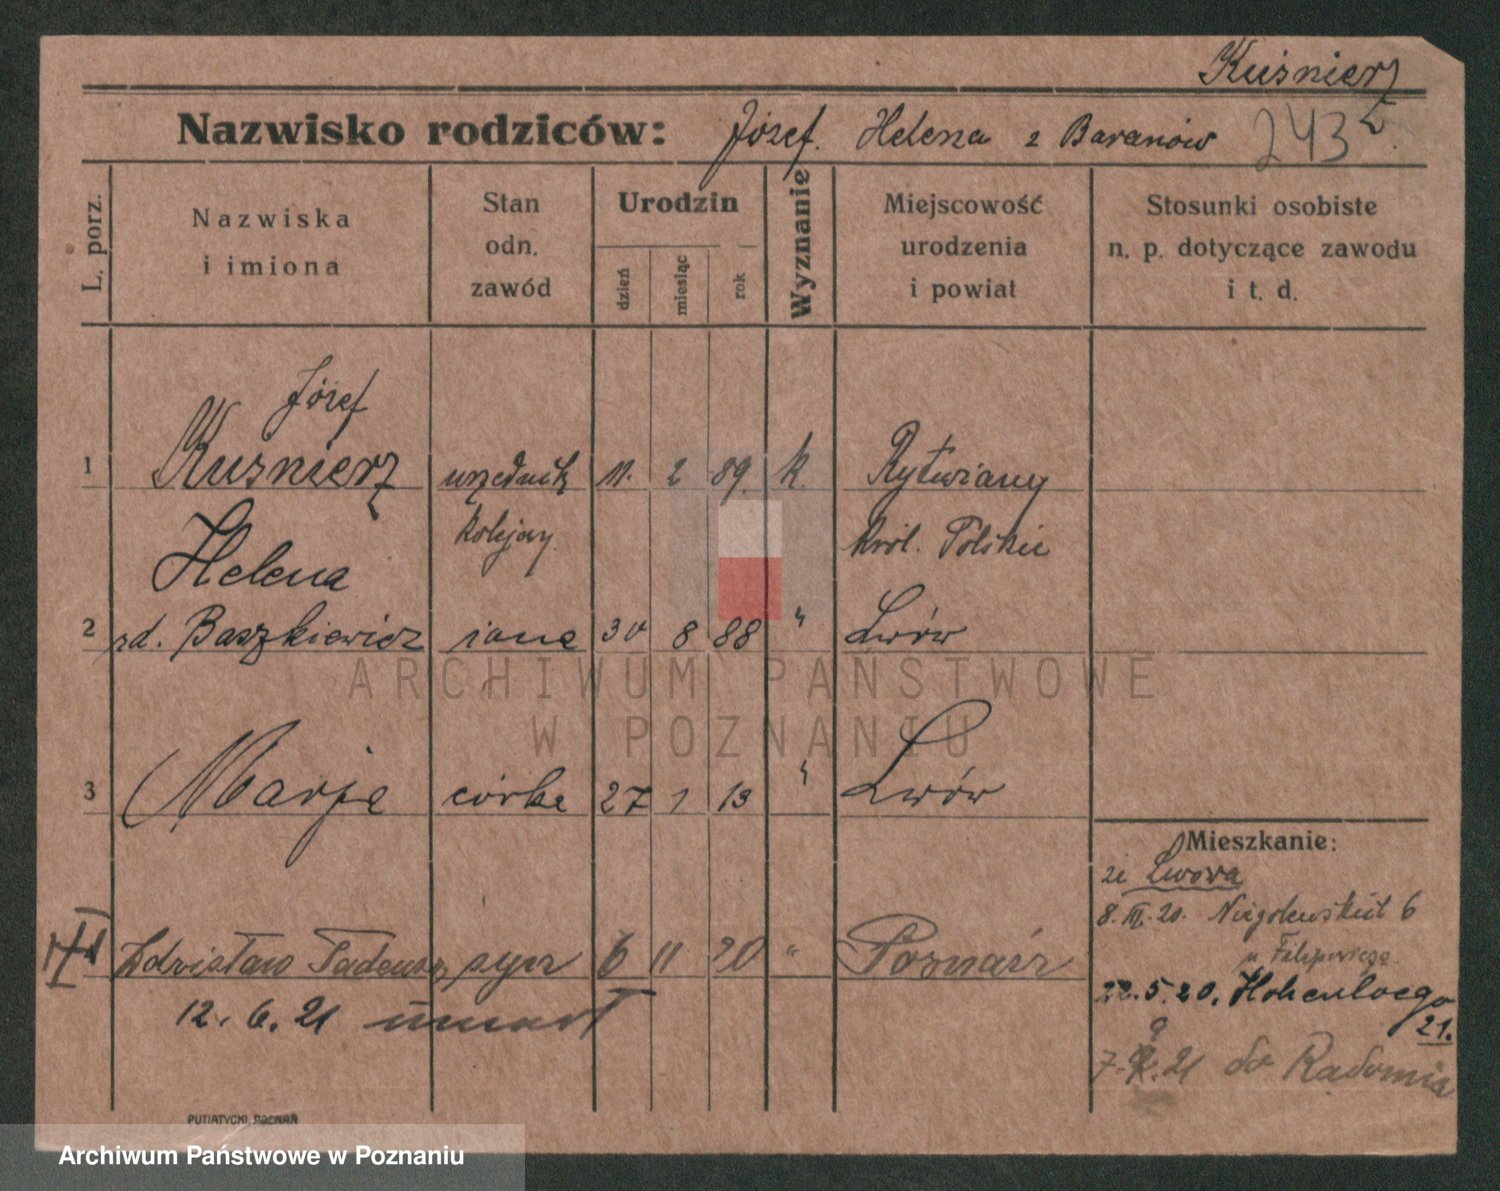 Kuśnierz
Nazwisko rodziców: Józef. Helena z Baranów 243
L. porz.
Nazwiska i imiona
Stan odn. zawód
Urodzin
dzień
miesiąc
rok
Wyznanie
Miejscowość urodzenia i powiat
Stosunki osobiste n. p. dotyczące zawodu i t. d.
Józef
1 Kuśnierz urzędnik 11. 2 89. k. Rytwiany
kolejowy. Król. Polskie
Helena
2 zd. Baszkiewicz żona 30 8 88 " Lwów
ARCHIWUM PAŃSTWOWE
W POZNANIU
3 Marja córka 27 1 13 " Lwów
Mieszkanie:
ze Lwowa
8. III. 20. Niegolewskich 6
u Filipowicza
Zdzisław Tadeusz syn 6 11 20 " Poznań
22.5.20. Hohenloego
21.
12.6.21 umarł
9
7. .21 do Radomia
PUTIATYCKI, POZNAŃ
Archiwum Państwowe w Poznaniu